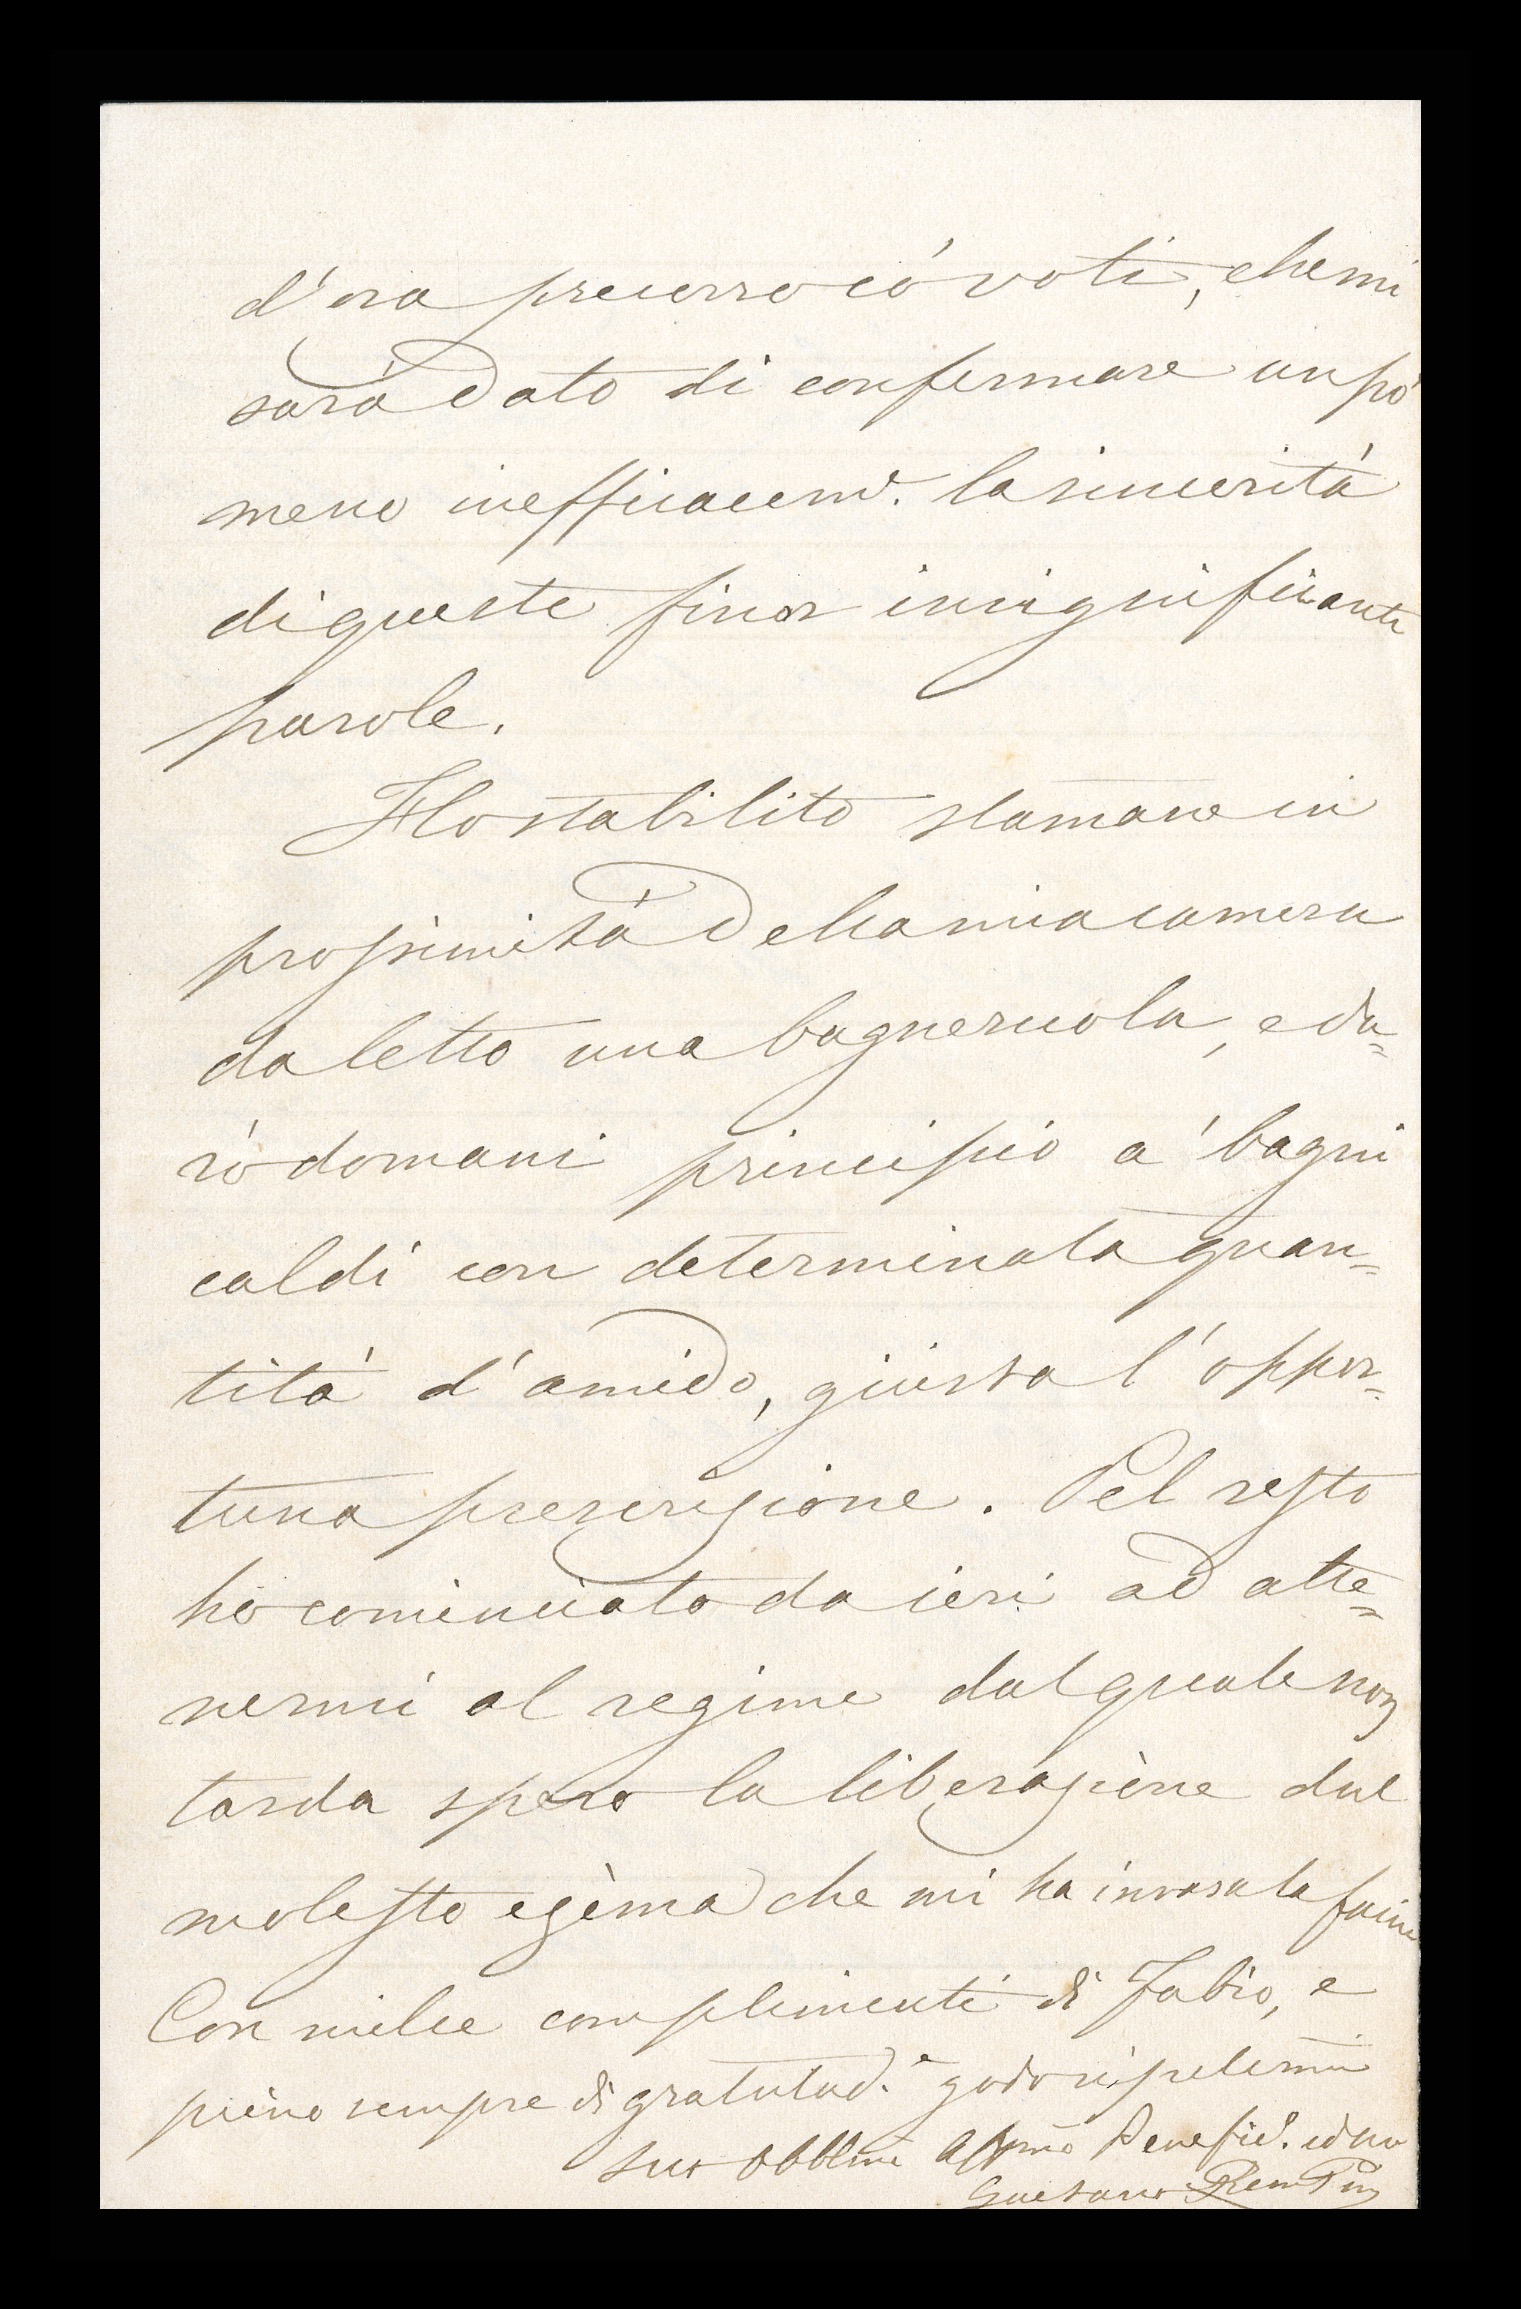 d'ora precorro co' voti, che mi
sarà dato di confermare un pò
meno inefficacem.e la sincerità
di queste finor insignificanti
parole.
Ho stabilito stamane in
prossimità della mia camera
da letto una bagneruola, e da=
rò domani principio a' bagni
caldi con determinata quan=
tità d'amido, giusta l'oppor=
tuna prescrizione. Pel resto
ho cominciato da ieri ad atte=
nermi al regime dal quale non
tarda spero la liberazione dal
molesto egèma che mi ha invasa la faccia
Con mille complimenti di Fabio, e
pieno sempre di gratitud.e godo ripetermi
Suo Obblmo Affmo
Gaetano